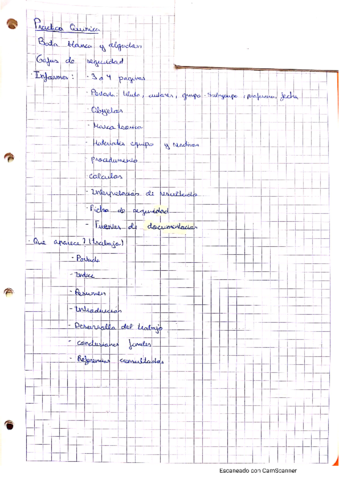 Práctica Química
Bata blanca y algodón
Gafas de seguridad
· Informe: - 3 o 4 páginas
- Portada: título, autores, grupo - subgrupo, profesor, fecha
Objetivos
- Marco teórico
- Materiales equipo y reactivos
procedimiento
calculos
- Interpretación de resultados
- Fichas de seguridad
- Fuentes de documentación
· Que aparece? (trabajo)
- Portada
- Indice
- Resumen
- Introduccion
- Desarrollo del trabajo
- conclusiones finales
- Referencias consultadas
Escaneado con CamScanner